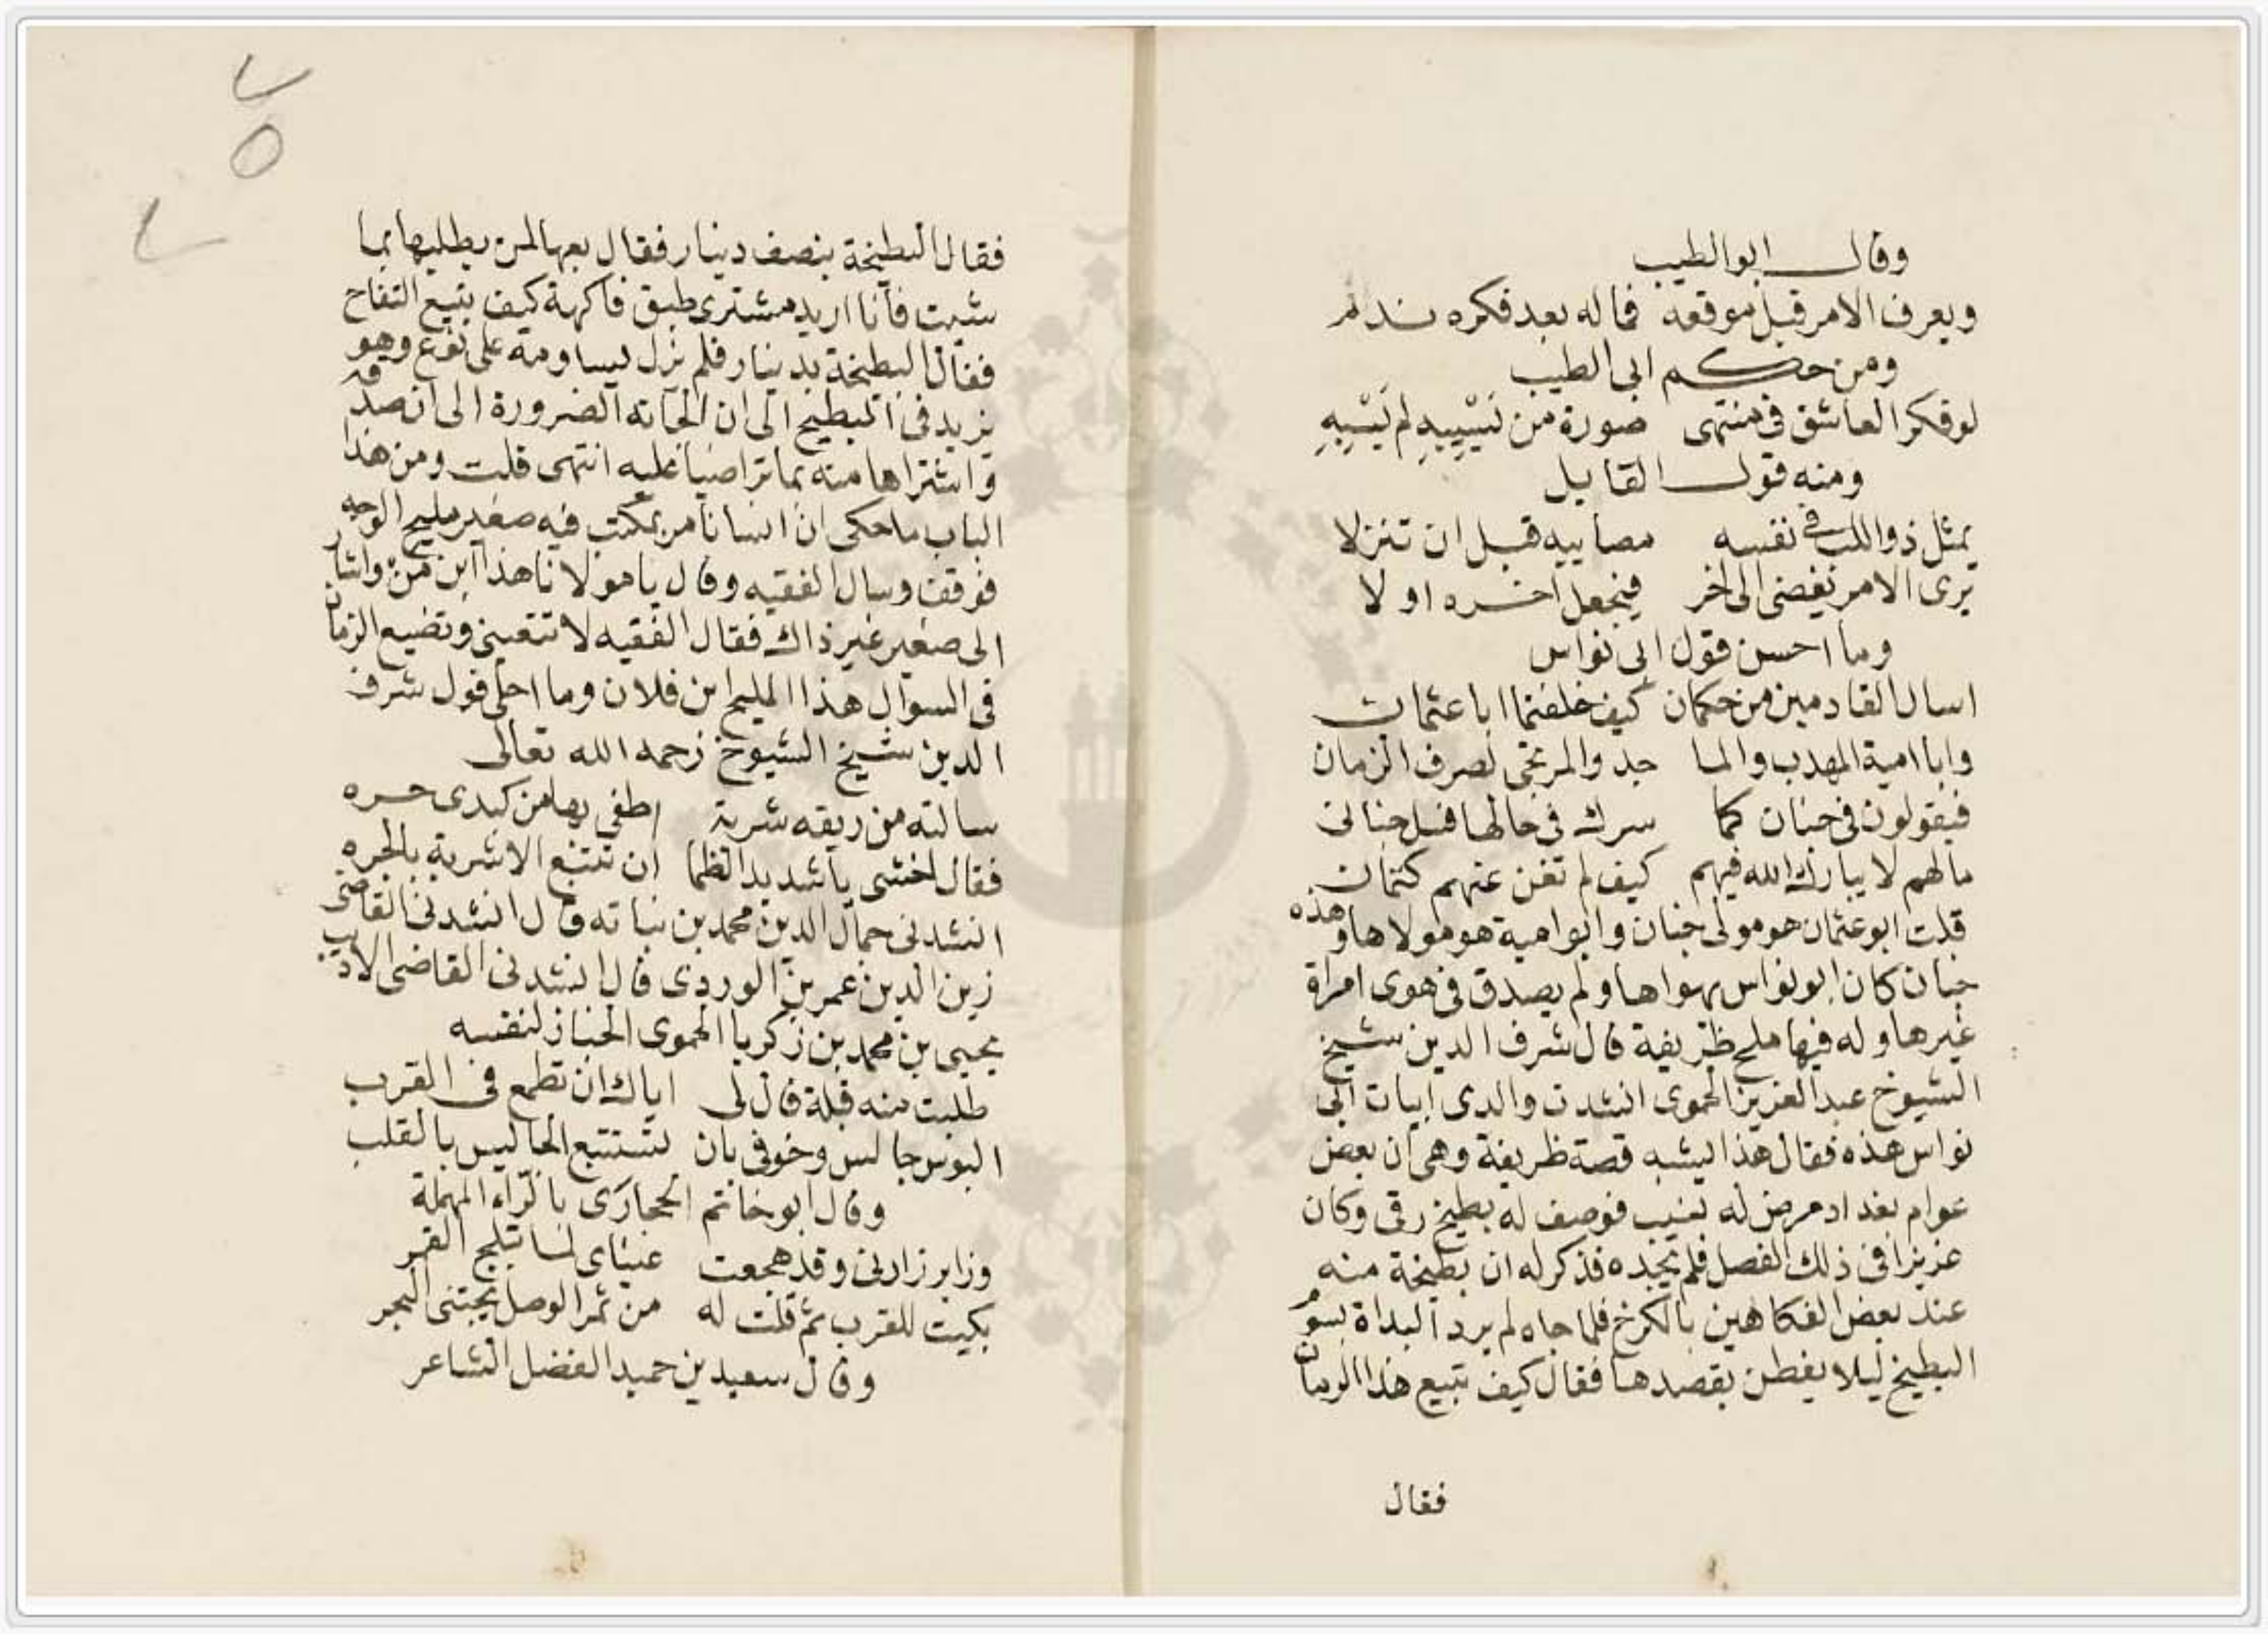 وقال ابو الطيب
ويعرف الامر قبل موقعه فما له بعد فكره ندم
ومن حكم ابى الطيب
لو فكر العاشق فى منتهى صورة من يَسْبِيهِ لم يَسْبِهِ
ومنه قول القايل
يمثل ذو اللب فى نفسه مصايبه قبل ان تنزلا
يرى الامر يفضى الى اخر فيجعل اخره اولا
وما احسن قول ابى نواس
اسال القادمين من حكمان كيف خلفتما ابا عثمان
وابا امية المهدب والما جد والمرتجى لصرف الزمان
فيقولون فى جنان كما سرك فى حالها فسل جنان
مالهم لا يبارك الله فيهم كيف لم تغن عنهم كتمان
قلت ابو عثمان هو مولى جنان وابو امية هو مولاها وهذه
جنان كان ابو نواس يهواها ولم يصدق فى هوى امراة
غيرها وله فيها ملح ظريفة قال شرف الدين شيخ
الشيوخ عبد العزيز الحموى انشدت والدى ابيات ابى
نواس هذه فقال هذا يشبه قصة ظريفة وهى ان بعض
عوام بغداد مرض له نسيب فوصف له بطيخ رقى وكان
عزيزا فى ذلك الفصل فلم يجده فذكر له ان بطيخة منه
عند بعض الفكاهين بالكرخ فلما جاه لم يرد البداة بسوم
البطيخ ليلا يفطن بقصدها فقال كيف تبيع هذا الرمان
فقال
فقال البطيخة بنصف دينار فقال بعها لمن يطلبها بما
شيت فانا اريد مشترى طبق فاكهة كيف تبيع التفاح
فقال البطيخة بدينار فلم يزل يساومه على نوع وهو
يزيد فى البطيخ الى ان الجاته الضرورة الى ان صدقه
واشتراها منه بما تراضيا عليه انتهى قلت ومن هذا
الباب ما حكى ان انسانا مر بمكتب فيه صغير مليح الوجه
فوقف وسال الفقيه وقال يا مولانا هذا ابن من واشار
الى صغير غير ذاك فقال الفقيه لا تتعبنى وتضيع الزمان
فى السوال هذا المليح ابن فلان وما احلى قول شرف
الدين شيخ الشيوخ رحمه الله تعالى
سالته من ريقه شربة اطفى بها من كبدى حره
فقال اخشى يا شديد الظما ان تتبع الاشربة بالجره
انشدنى جمال الدين محمد بن نباته قال انشدنى القاضى
زين الدين عمر بن الوردى قال انشدنى القاضى الاديب
يحيى بن محمد بن زكريا الحموى الخباز لنفسه
طلبت منه قبلة قال لى اياك ان تطمع فى القرب
البوس جاليس وخوفى بان تستتبع الجاليس بالقلب
وقال ابو خاتم الحجارى بالراء المهملة
وزاير زارنى وقد هجعت عيناى لما تبلج القمر
بكيت للقرب ثم قلت له من ثمر الوصل يجتنى الهجر
وقال سعيد بن حميد الفضل الشاعر